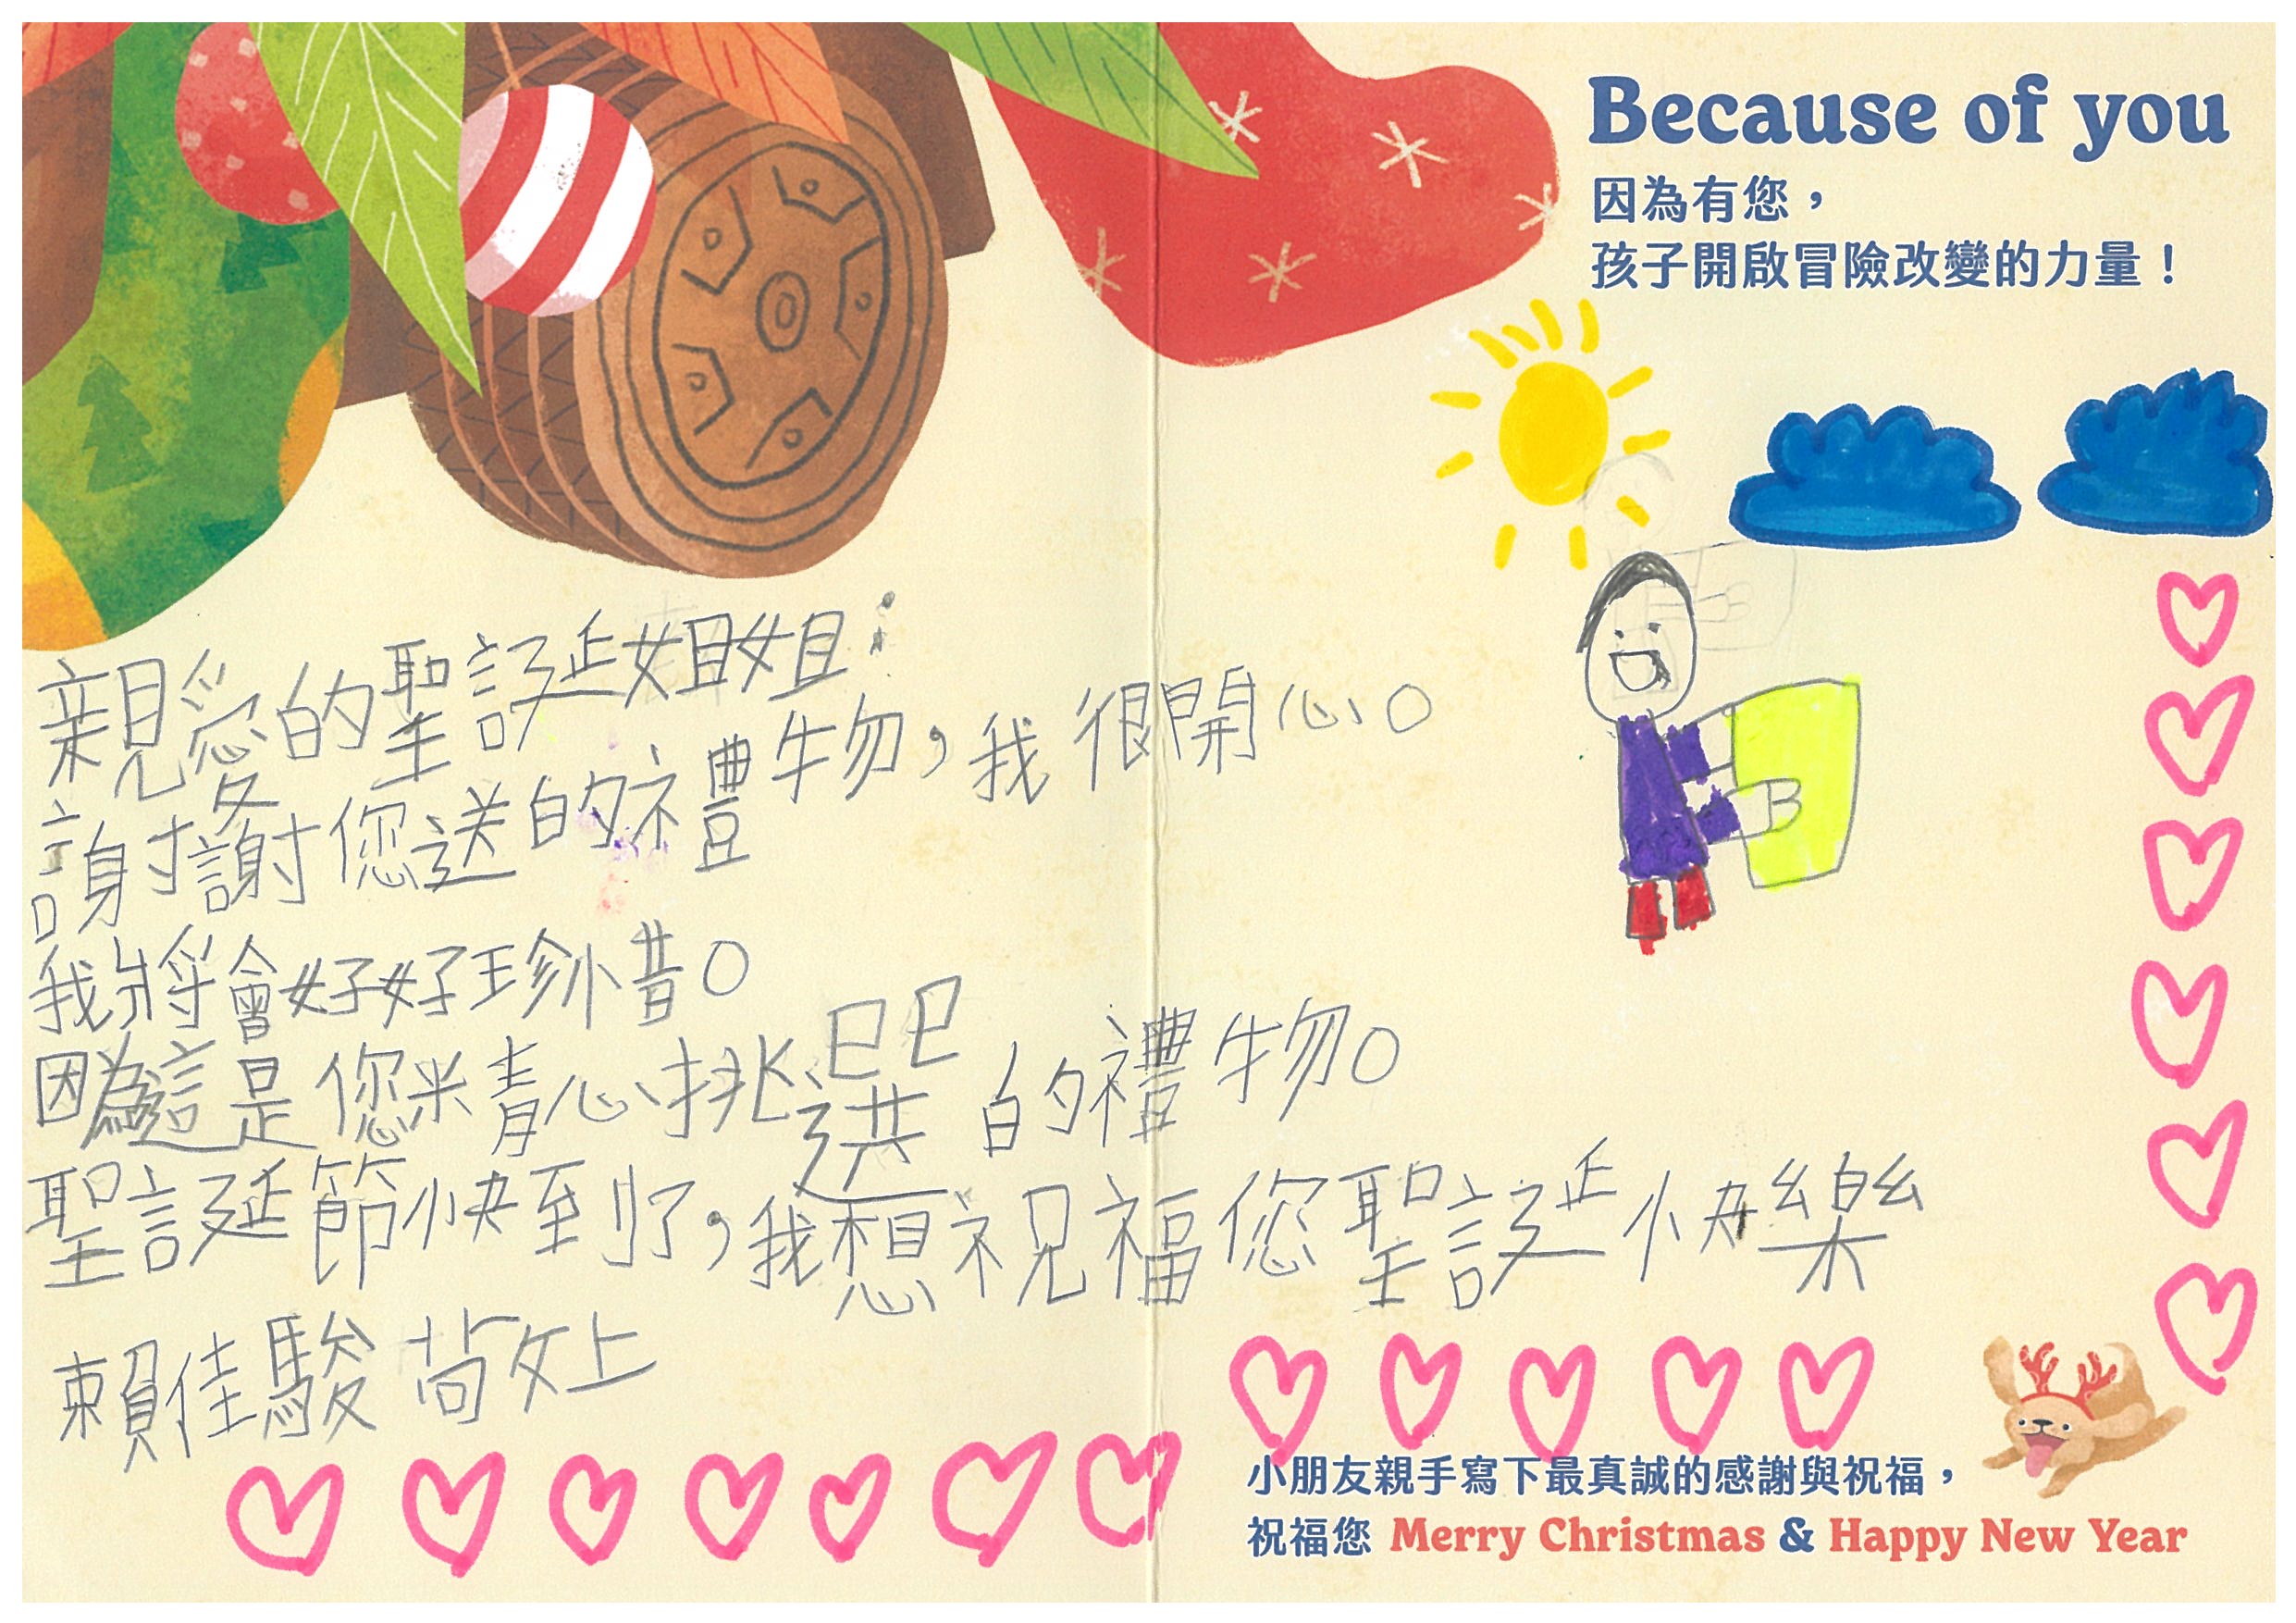 Because of you
因為有您，
孩子開啟冒險改變的力量！
親愛的聖誕姐姐：
謝謝您送的禮物，我很開心。
我將會好好珍惜。
因為這是您精心挑選的禮物。
聖誕節快到了，我想祝福您聖誕快樂
賴佳駿 敬上
小朋友親手寫下最真誠的感謝與祝福，
祝福您 Merry Christmas & Happy New Year